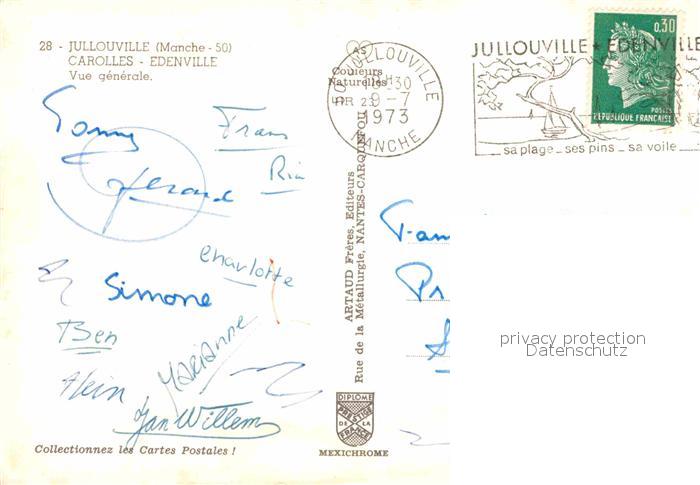 28 - JULLOUVILLE (Manche - 50)
CAROLLES - EDENVILLE
Vue générale.
Tonny
Frans
Gerard
Ria
Charlotte
Simone
Ben
Marianne
Alein
Jan Willem
Collectionnez les Cartes Postales !
Couleurs
Naturelles
PR 2
50 JULLOUVILLE
30
9-7
1973
MANCHE
ARTAUD Frères, Editeurs
Rue de la Métallurgie, NANTES-CARQUEFOU
DIPLOME
PRESTIGE
DE LA
FRANCE
MEXICHROME
JULLOUVILLE ★ EDENVILLE
sa plage _ ses pins _ sa voile
0,30
POSTES
REPUBLIQUE FRANÇAISE
Fam
Pr
privacy protection
Datenschutz